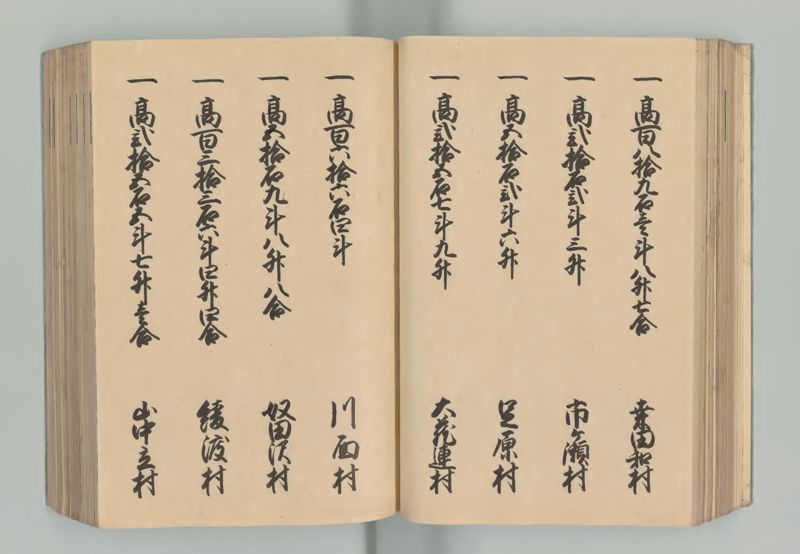 一 高百八拾九石壱斗八升七合 幸田和村
一 高弐拾石弐斗三升 市ヶ瀬村
一 高五拾石弐斗六升 足原村
一 高弐拾五石七斗九升 大花連村
一 高百六拾六石四斗 川面村
一 高五拾石九斗八升八合 奴田沢村
一 高百三拾三石六斗四升四合 綾渡村
一 高弐拾五石五斗七升壱合 山中立村